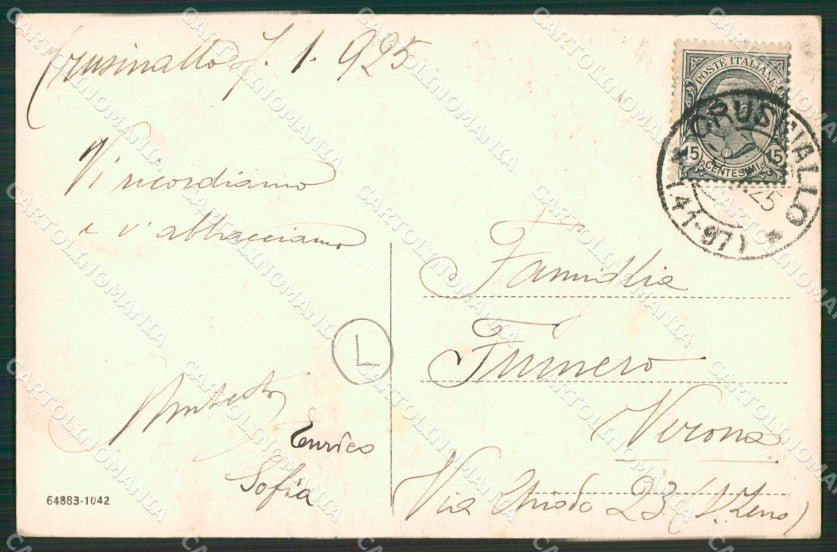 Crusinallo 7. 1. 925
Vi ricordiamo
e v'abbracciamo
Umberto
Enrico
Sofia
64883-1042
L
POSTE ITALIANE
15 CENTESIMI 15
CRUSINALLO
25
(41-97)
Famiglia
Fumero
Verona
Via Chiodo 23 (S. Zeno)
CARTOLINOMANIA